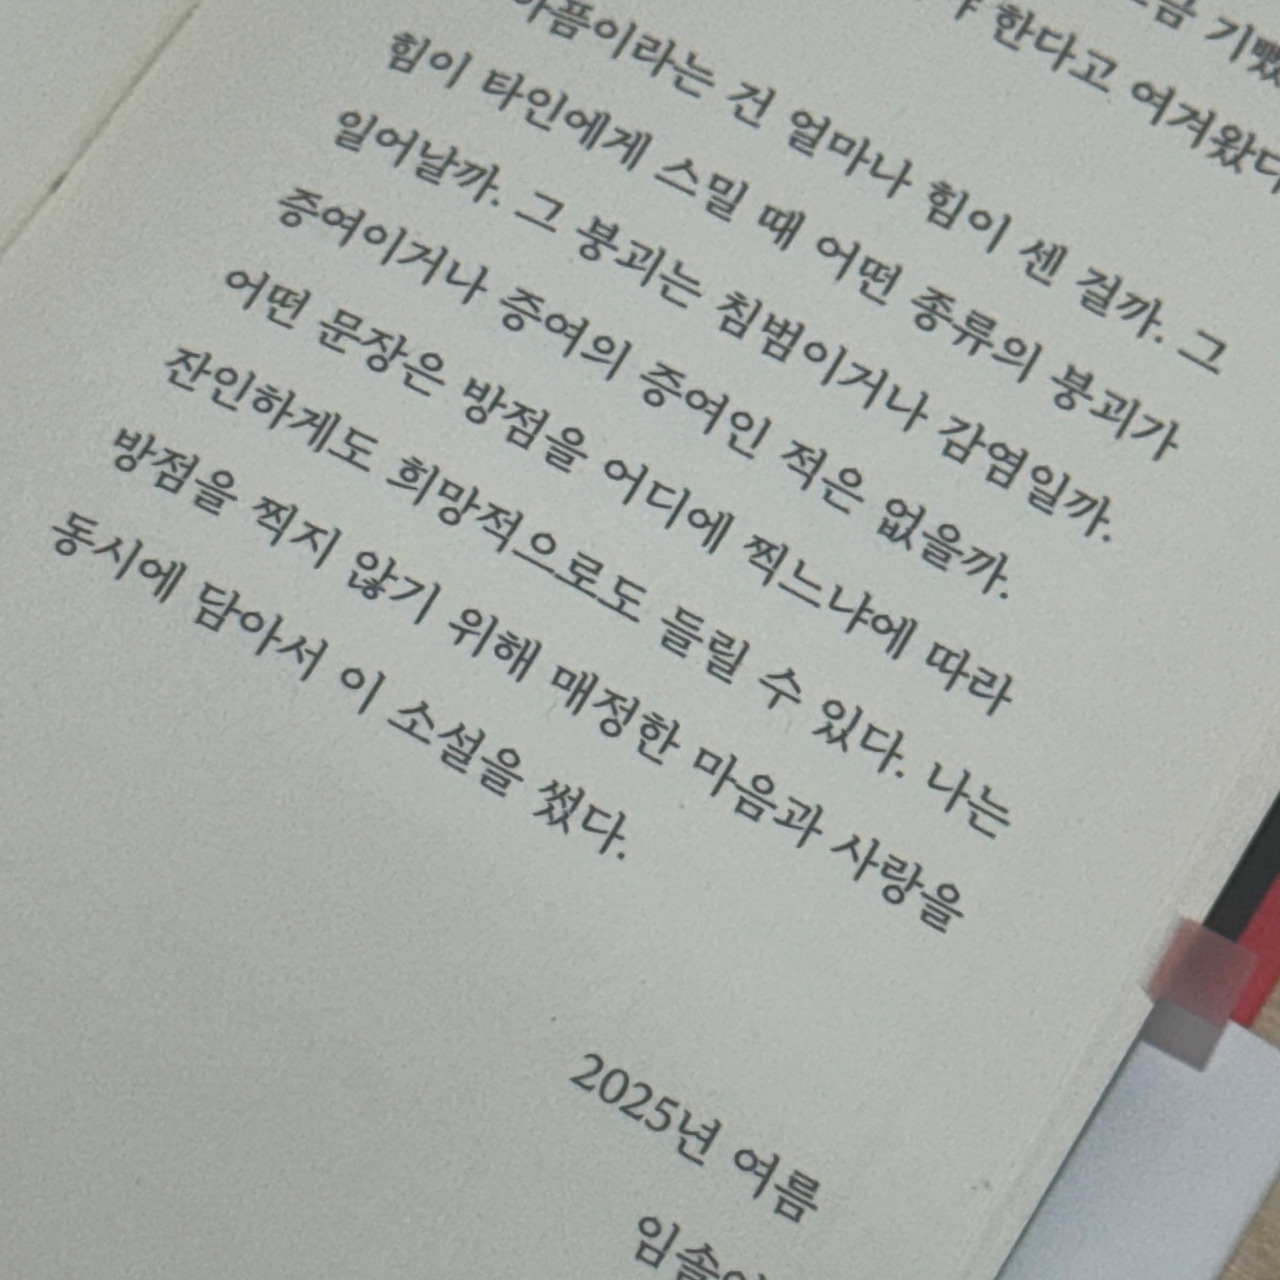 기뻤
한다고 여겨왔다
아픔이라는 건 얼마나 힘이 센 걸까. 그
힘이 타인에게 스밀 때 어떤 종류의 붕괴가
일어날까. 그 붕괴는 침범이거나 감염일까.
증여이거나 증여의 증여인 적은 없을까.
어떤 문장은 방점을 어디에 찍느냐에 따라
잔인하게도 희망적으로도 들릴 수 있다. 나는
방점을 찍지 않기 위해 매정한 마음과 사랑을
동시에 담아서 이 소설을 썼다.
2025년 여름
임솔아